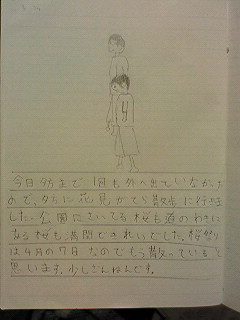 今日夕方まで1回も外へ出ていなかった
ので、夕方に花見がてら散歩に行きま
した。公園にさいてる桜も道のわきに
ある桜も満開できれいでした。桜祭り
は4月の7日なのでもう散っていると
思います。少しざんねんです。